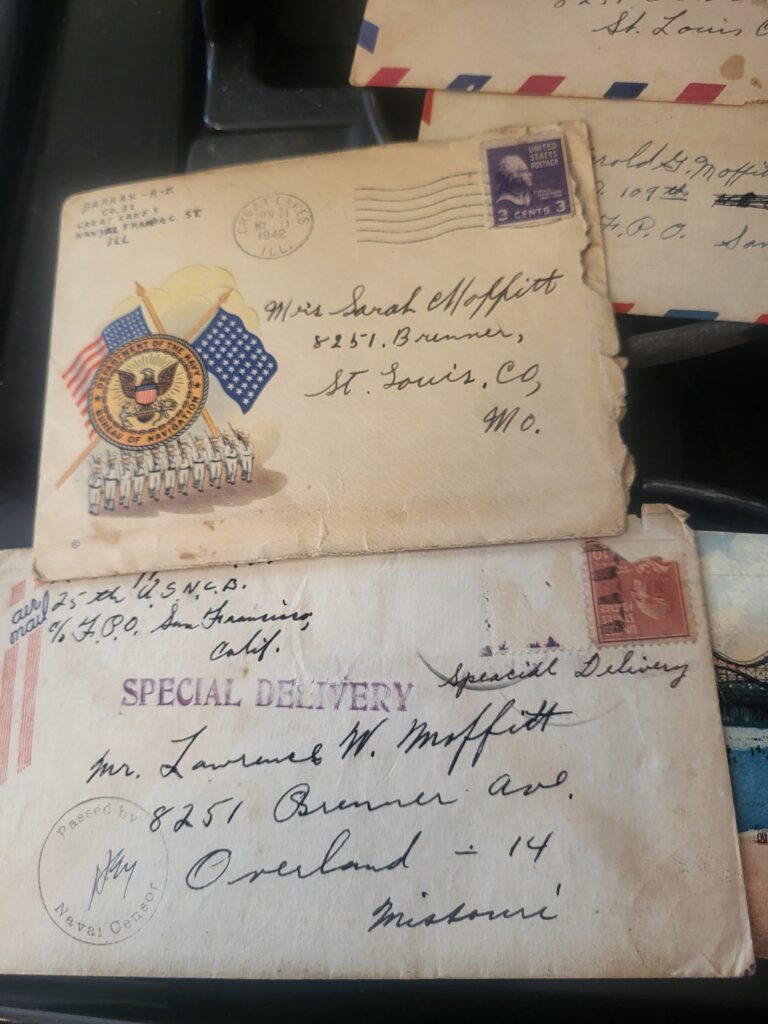 St. Louis
109th
F.P.O.
CO. 32
GREAT LAKES
ILL
GREAT LAKES
1942
ILL.
UNITED
STATES
POSTAGE
3 CENTS 3
DEPARTMENT OF THE NAVY
BUREAU OF NAVIGATION
Miss Sarah Moffitt
8251, Brenner,
St. Louis, CO,
Mo.
©
air
mail
25th U.S.N.C.B.
c/o F.P.O. San Francisco,
Calif.
SPECIAL DELIVERY
Speacial Delivery
Mr. Lawrence W. Moffitt
8251 Brenner Ave.
Overland - 14
Missouri
Passed by
Naval Censor